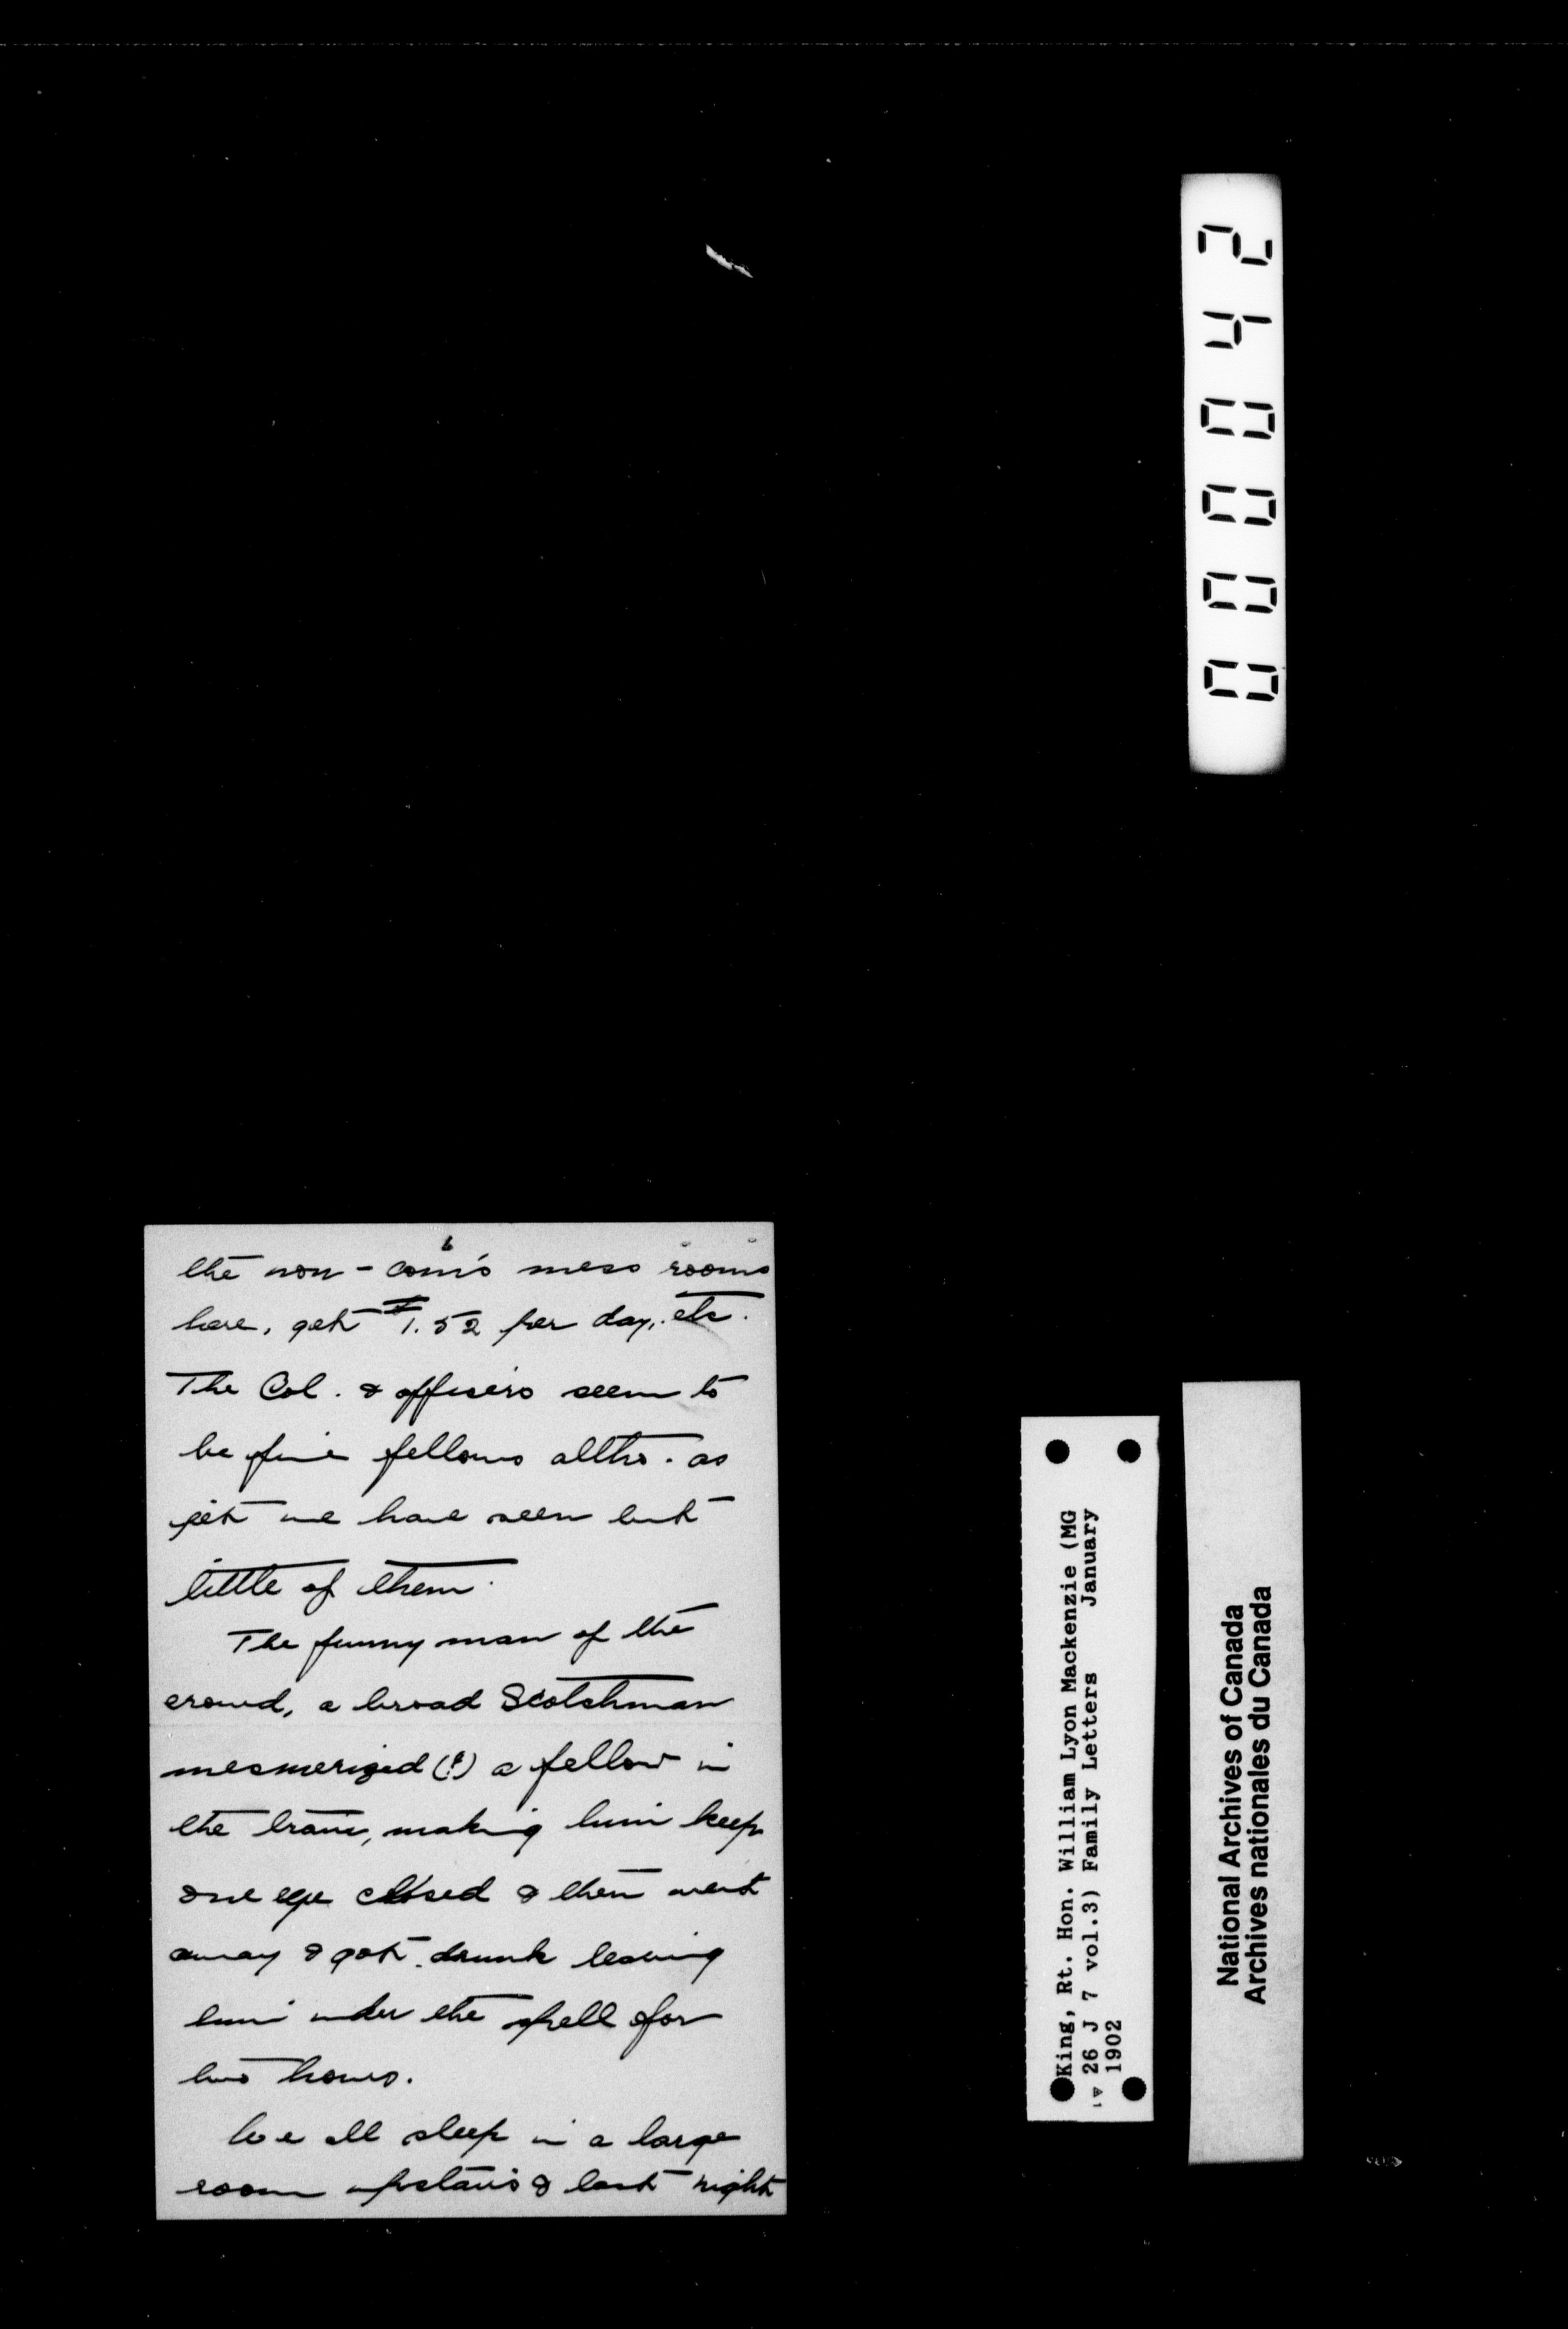 6
the non-com's mess rooms
here, get $1.52 per day, etc.
The Col. & officers seem to
be fine fellows altho. as
yet we have seen but
little of them.
The funny man of the
crowd, a broad Scotchman
mesmerized (?) a fellow in
the train, making him keep
one eye closed & then went
away & got drunk leaving
him under the spell for
two hours.
We all sleep in a large
room upstairs & last night
000042
King, Rt. Hon. William Lyon Mackenzie (MG
26 J 7 vol.3) Family Letters January
1902
National Archives of Canada
Archives nationales du Canada